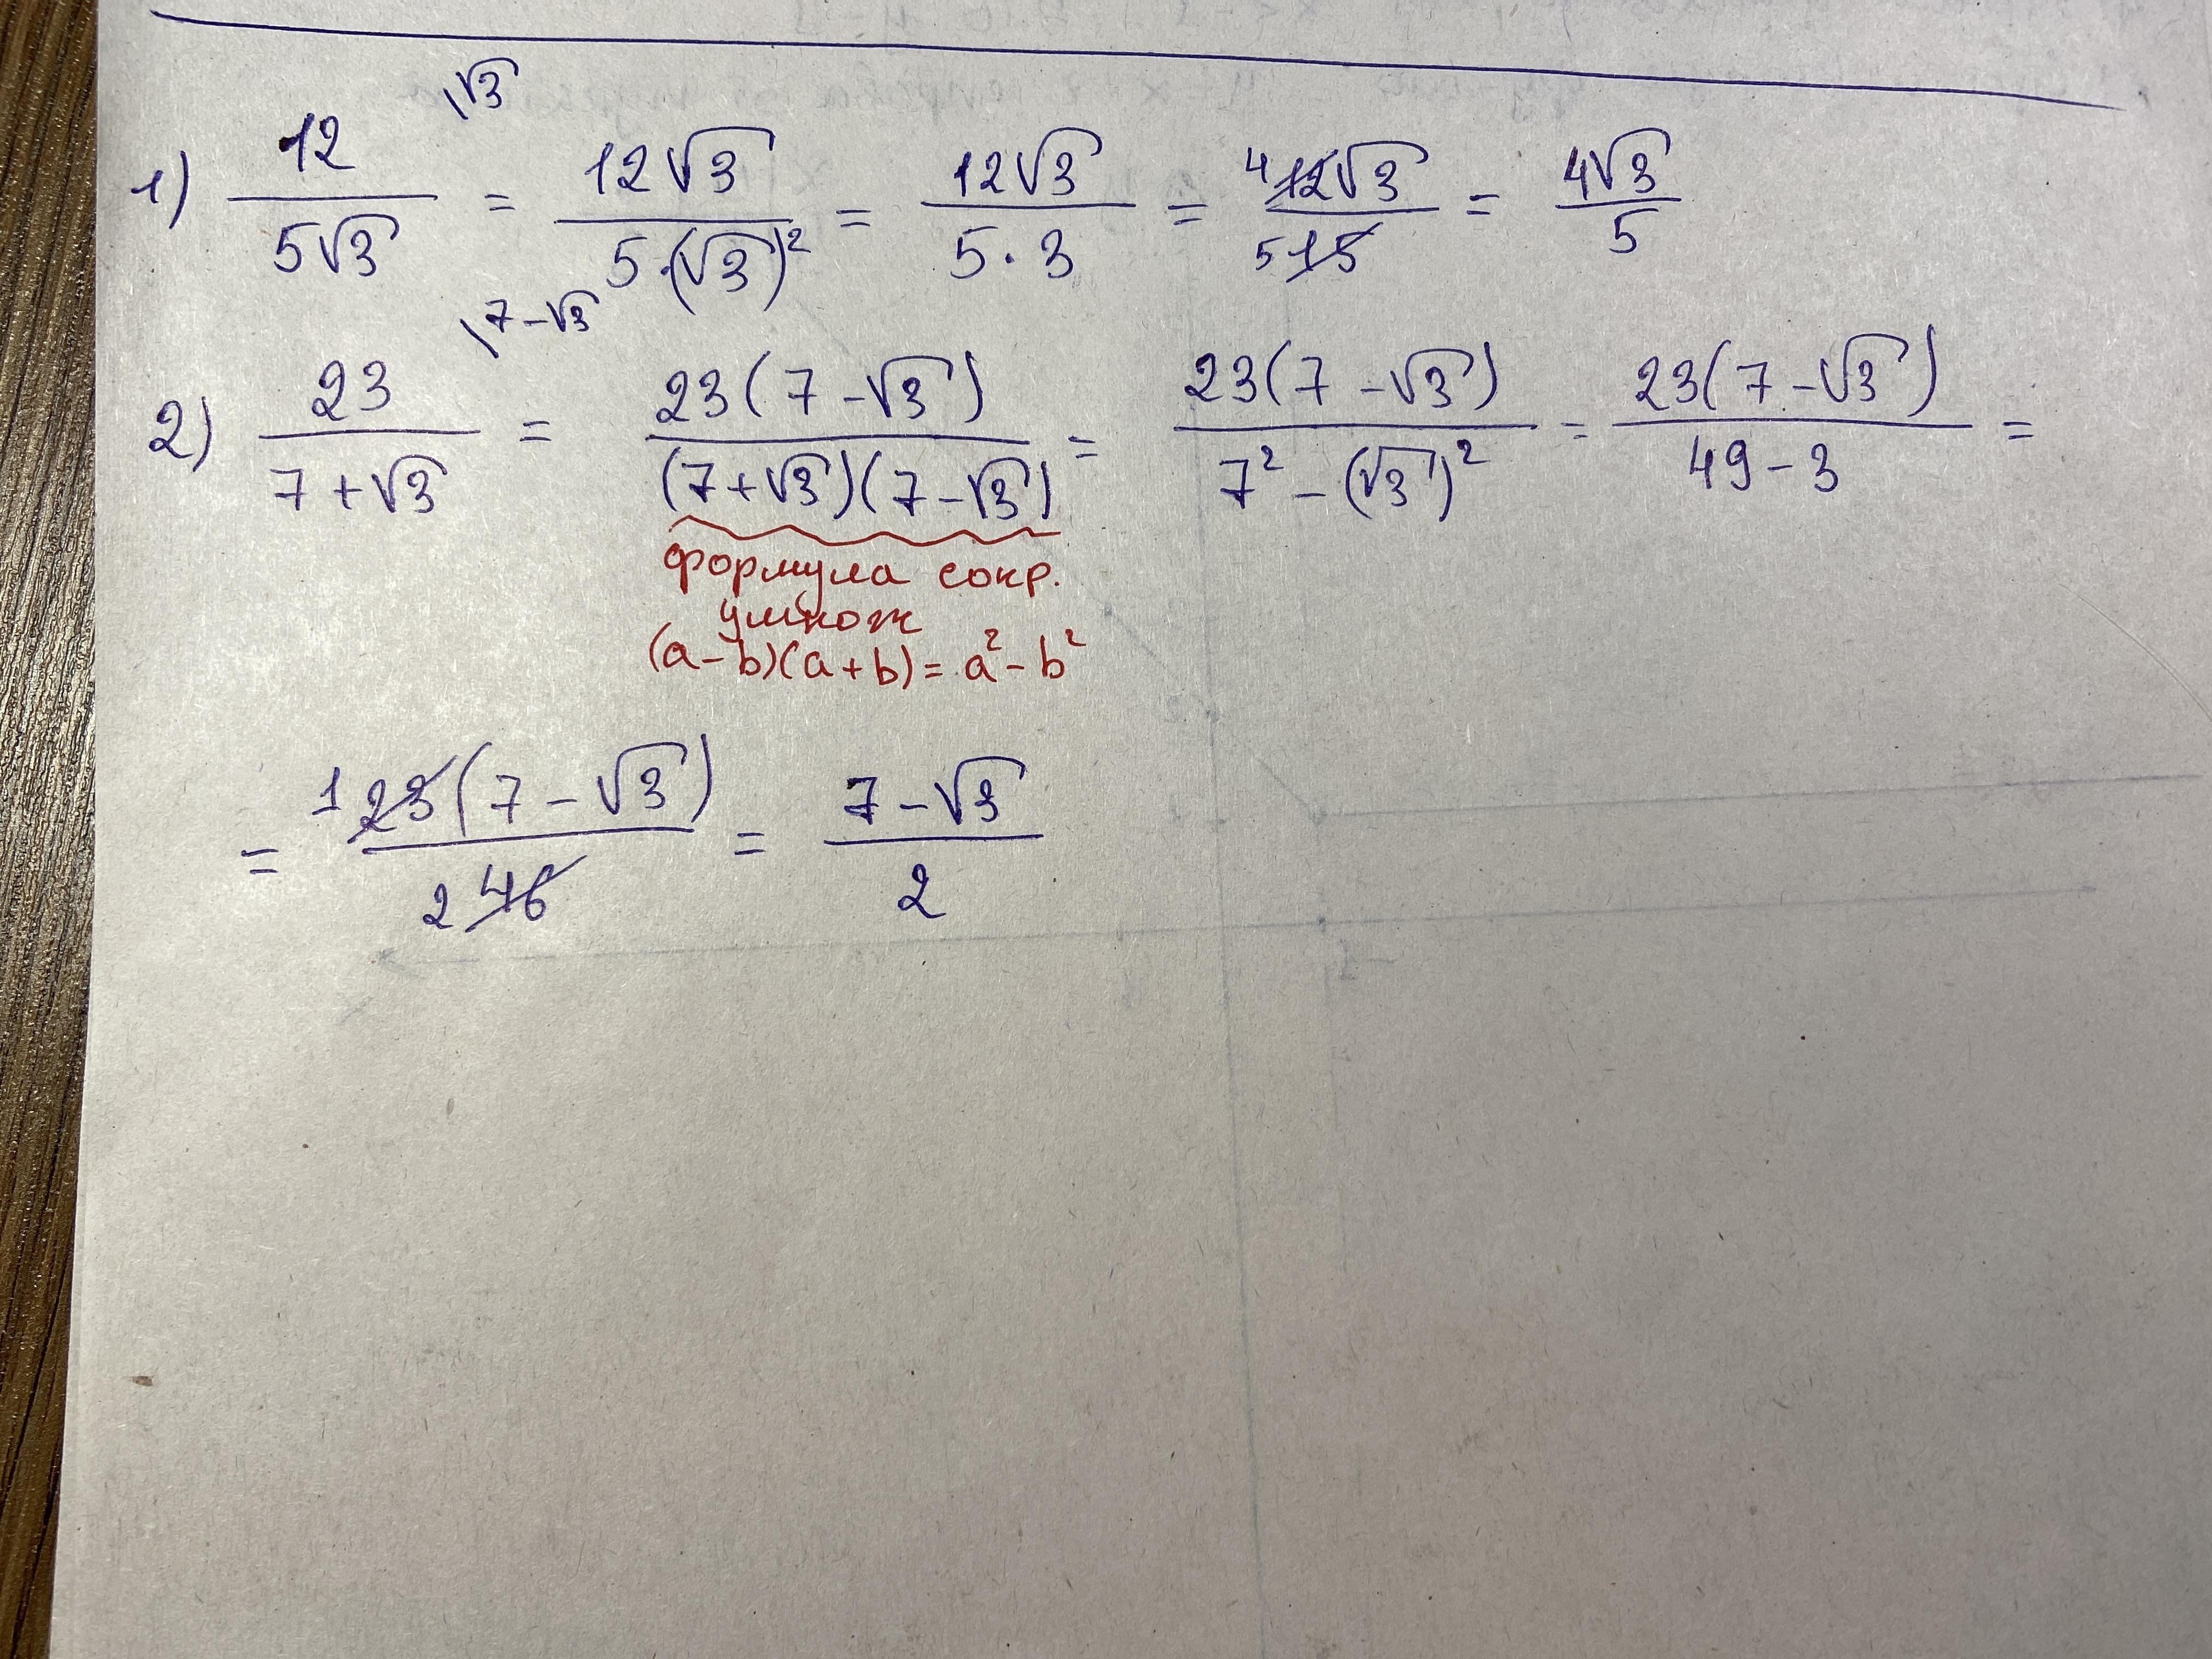 \√3
1) 12/(5√3) = 12√3/(5·(√3)²) = 12√3/(5·3) = 4 12√3/(5 15) = 4√3/5
\7-√3
2) 23/(7+√3) = 23(7-√3)/((7+√3)(7-√3)) = 23(7-√3)/(7²-(√3)²) = 23(7-√3)/(49-3) =
формула сокр.
умнож
(a-b)(a+b)=a²-b²
= 1 23(7-√3)/(2 46) = (7-√3)/2